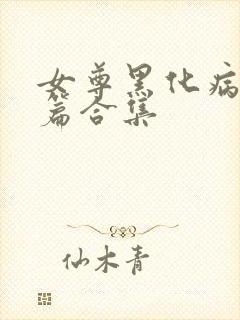 女尊黑化病
篇合集
仙木青